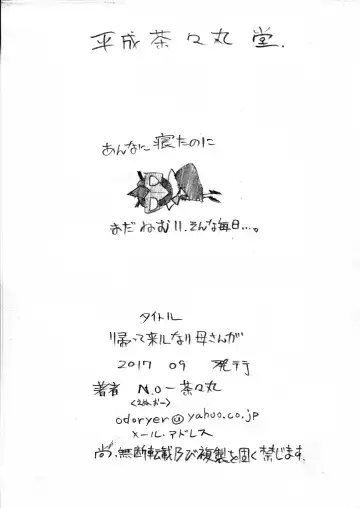 平成茶々丸堂.
あんなに寝たのに
まだねむい.そんな毎日…。
タイトル
帰って来 しない母さんが
2017 09 発行
著者 N.O－茶々丸
<えぬおー>
odoryer@yahoo.co.jp
メール・アドレス
尚、無断転載及び複製を固く禁じます.